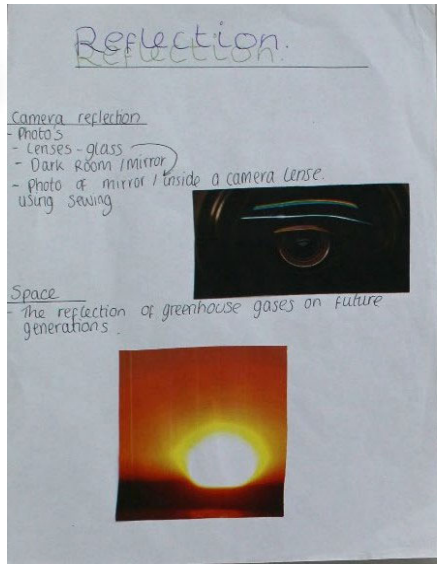 Reflection.
Camera reflection
- Photo's
- Lenses - glass
- Dark Room / mirror
- Photo of mirror / inside a camera lense.
using sewing
Space
- The reflection of greenhouse gases on future
generations.